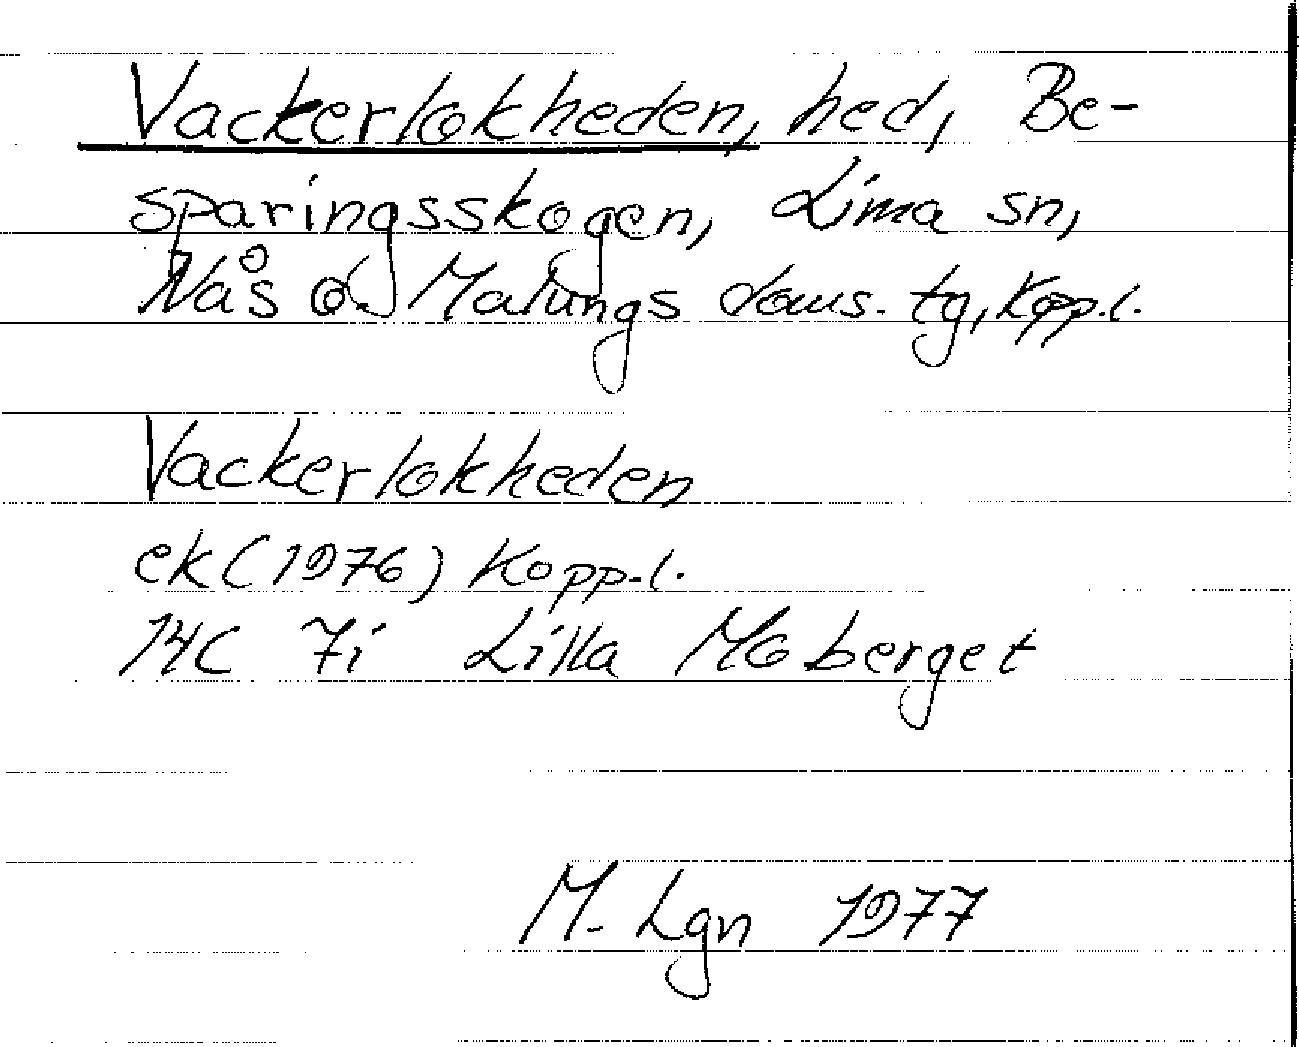 Vackerlokheden, hed, Be-
sparingsskogen, Lima sn,
Nås o. Malungs doms. tg, Kopp.l.
Vackerlokheden
ek (1976) Kopp.l.
14C 7i Lilla Moberget
M. Lgn 1977